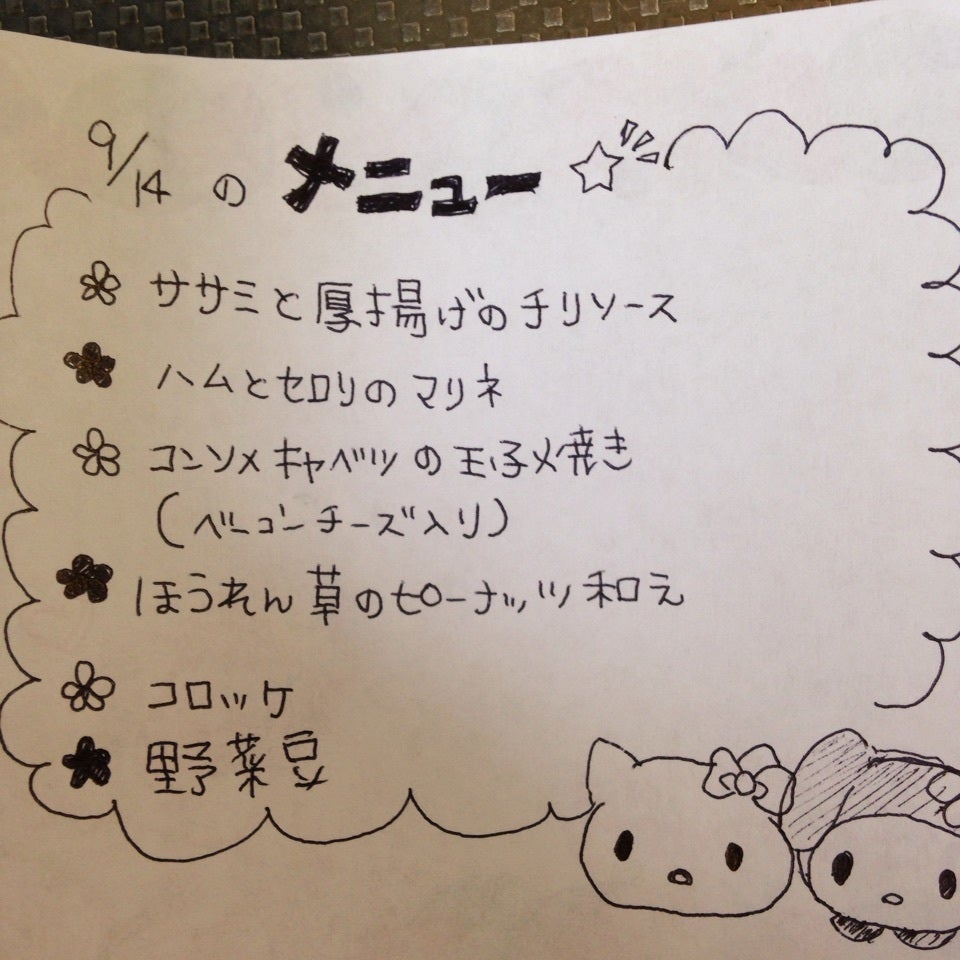 9/14 の メニュー
ササミと厚揚げのチリソース
ハムとセロリのマリネ
コンソメキャベツの玉子メ焼き
(ベーコンチーズ入り)
ほうれん草のピーナッツ和え
コロッケ
野菜豆